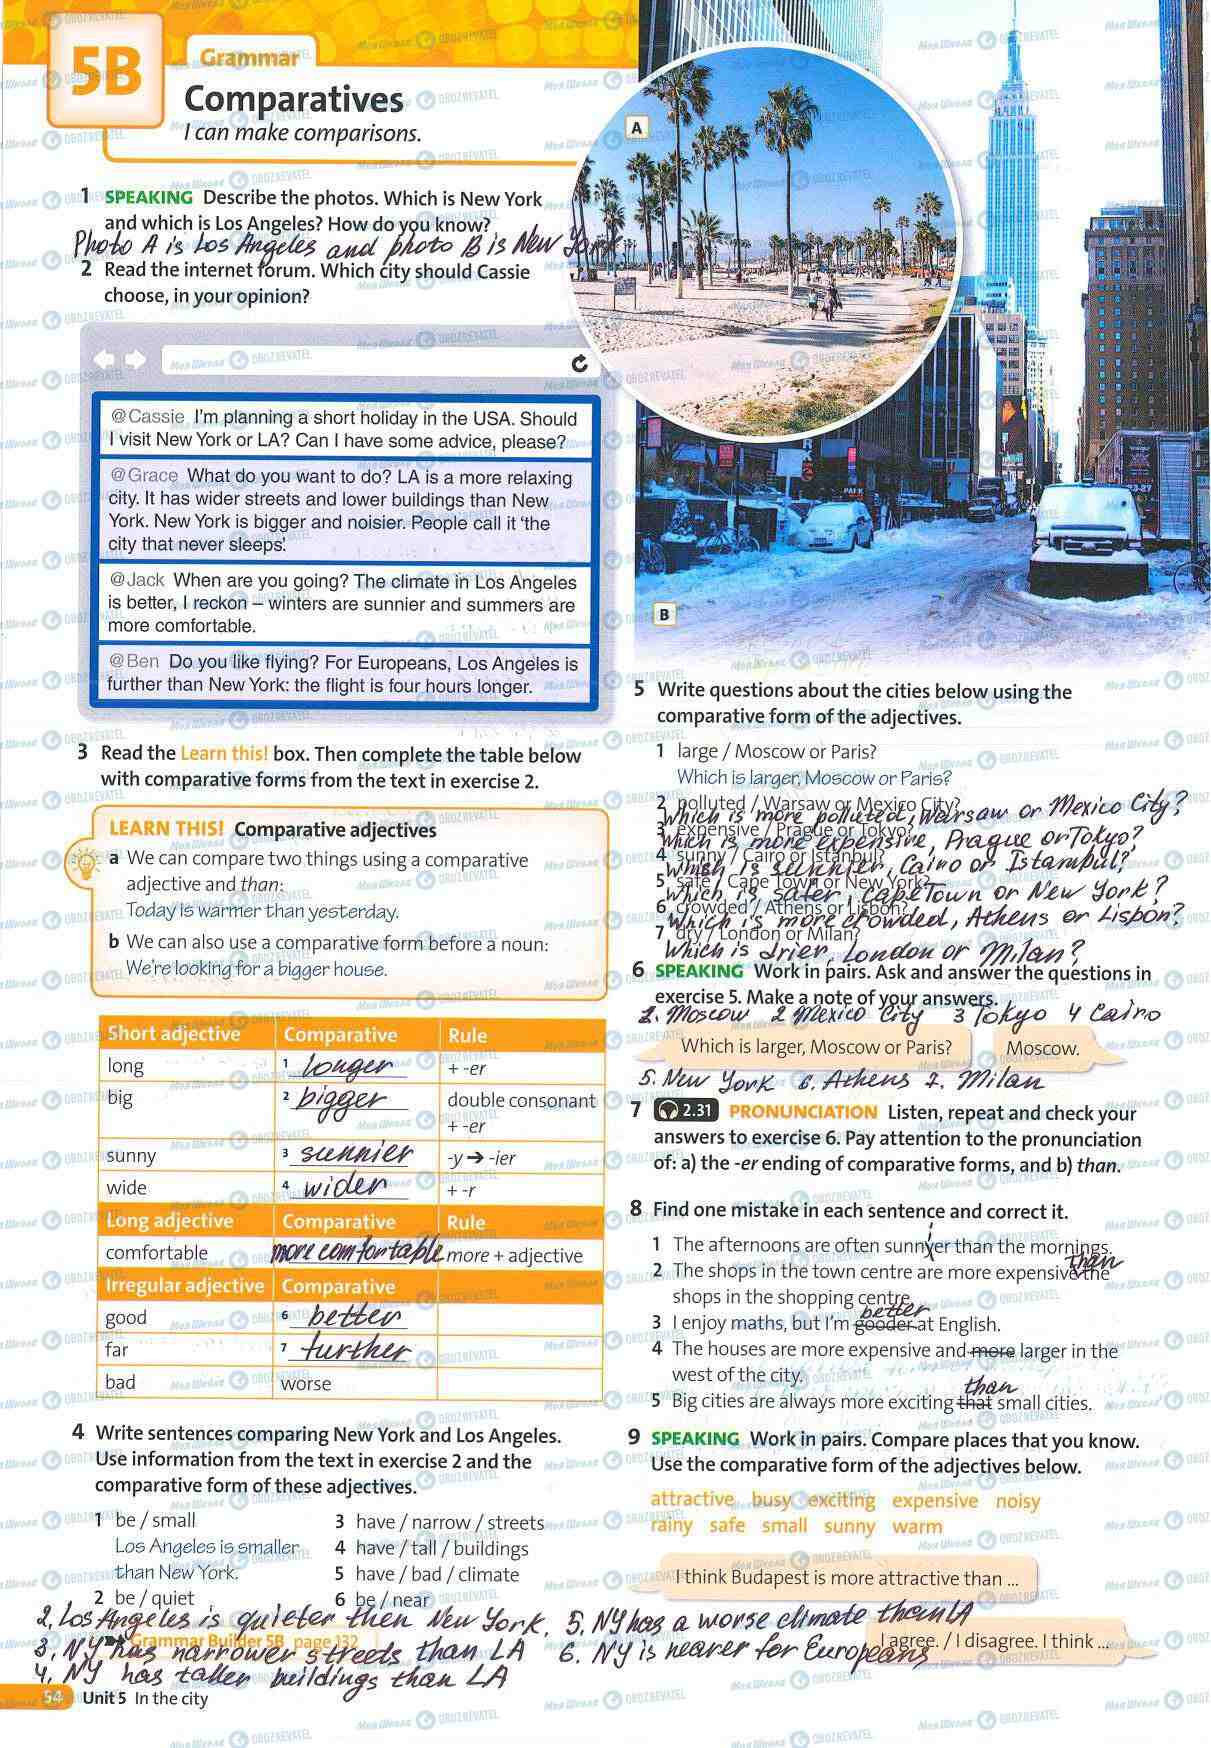 5B
Grammar
Comparatives
I can make comparisons.
1 SPEAKING Describe the photos. Which is New York
and which is Los Angeles? How do you know?
Photo A is Los Angeles and photo B is New York
2 Read the internet forum. Which city should Cassie
choose, in your opinion?
@Cassie I'm planning a short holiday in the USA. Should
I visit New York or LA? Can I have some advice, please?
@Grace What do you want to do? LA is a more relaxing
city. It has wider streets and lower buildings than New
York. New York is bigger and noisier. People call it 'the
city that never sleeps'.
@Jack When are you going? The climate in Los Angeles
is better, I reckon – winters are sunnier and summers are
more comfortable.
@Ben Do you like flying? For Europeans, Los Angeles is
further than New York: the flight is four hours longer.
3 Read the Learn this! box. Then complete the table below
with comparative forms from the text in exercise 2.
LEARN THIS! Comparative adjectives
a We can compare two things using a comparative
adjective and than:
Today is warmer than yesterday.
b We can also use a comparative form before a noun:
We're looking for a bigger house.
Short adjective Comparative Rule
long 1 longer + -er
big 2 bigger double consonant
+ -er
sunny 3 sunnier -y ➔ -ier
wide 4 wider + -r
Long adjective Comparative Rule
comfortable more comfortable more + adjective
Irregular adjective Comparative
good 6 better
far 7 further
bad worse
4 Write sentences comparing New York and Los Angeles.
Use information from the text in exercise 2 and the
comparative form of these adjectives.
1 be / small
Los Angeles is smaller
than New York.
2 be / quiet
3 have / narrow / streets
4 have / tall / buildings
5 have / bad / climate
6 be / near
2. Los Angeles is quieter then New York.
3. NY has narrower streets than LA
4. NY has taller buildings than LA
5. NY has a worse climate than LA
6. NY is nearer for Europeans
Grammar Builder 5B page 132
54 Unit 5 In the city
A
B
PARK
5 Write questions about the cities below using the
comparative form of the adjectives.
1 large / Moscow or Paris?
Which is larger, Moscow or Paris?
2 polluted / Warsaw or Mexico City?
Which is more polluted, Warsaw or Mexico City?
3 expensive / Prague or Tokyo?
Which is more expensive, Prague or Tokyo?
4 sunny / Cairo or Istanbul?
Which is sunnier, Cairo or Istambul?
5 safe / Cape Town or New York?
Which is safer, Cape Town or New York?
6 crowded / Athens or Lisbon?
Which is more crowded, Athens or Lisbon?
7 dry / London or Milan?
Which is drier, London or Milan?
6 SPEAKING Work in pairs. Ask and answer the questions in
exercise 5. Make a note of your answers.
1. Moscow 2 Mexico City 3 Tokyo 4 Cairo
Which is larger, Moscow or Paris? Moscow.
5. New York 6. Athens 7. Milan
7 2.31 PRONUNCIATION Listen, repeat and check your
answers to exercise 6. Pay attention to the pronunciation
of: a) the -er ending of comparative forms, and b) than.
8 Find one mistake in each sentence and correct it.
i
1 The afternoons are often sunnyer than the mornings.
than
2 The shops in the town centre are more expensive the
shops in the shopping centre.
better
3 I enjoy maths, but I'm gooder at English.
4 The houses are more expensive and more larger in the
west of the city.
than
5 Big cities are always more exciting that small cities.
9 SPEAKING Work in pairs. Compare places that you know.
Use the comparative form of the adjectives below.
attractive busy exciting expensive noisy
rainy safe small sunny warm
I think Budapest is more attractive than ...
I agree. / I disagree. I think ...
Моя Школа OBOZREVATEL